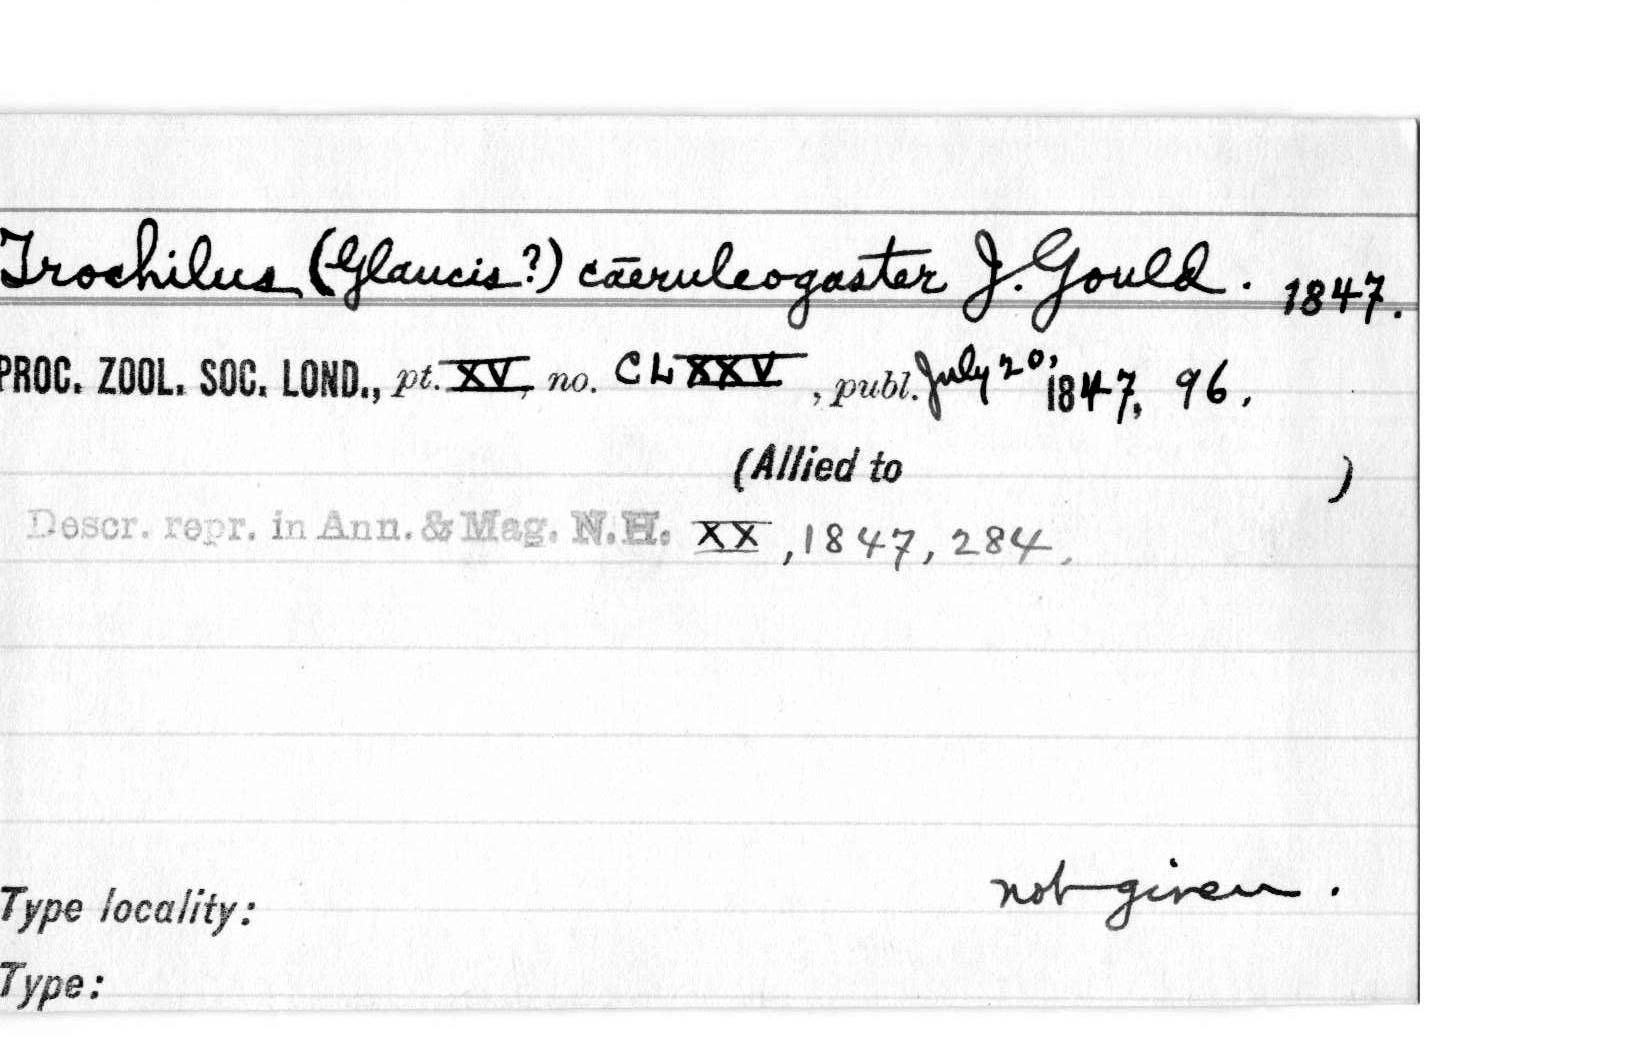 Trochilus (Glaucis?) cāeruleogaster J. Gould. 1847.
PROC. ZOOL. SOC. LOND., pt. XV, no. CLXXV, publ. July 20, 1847, 96.
(Allied to )
Descr. repr. in Ann. & Mag. N.H. XX, 1847, 284.
Type locality: not given.
Type: